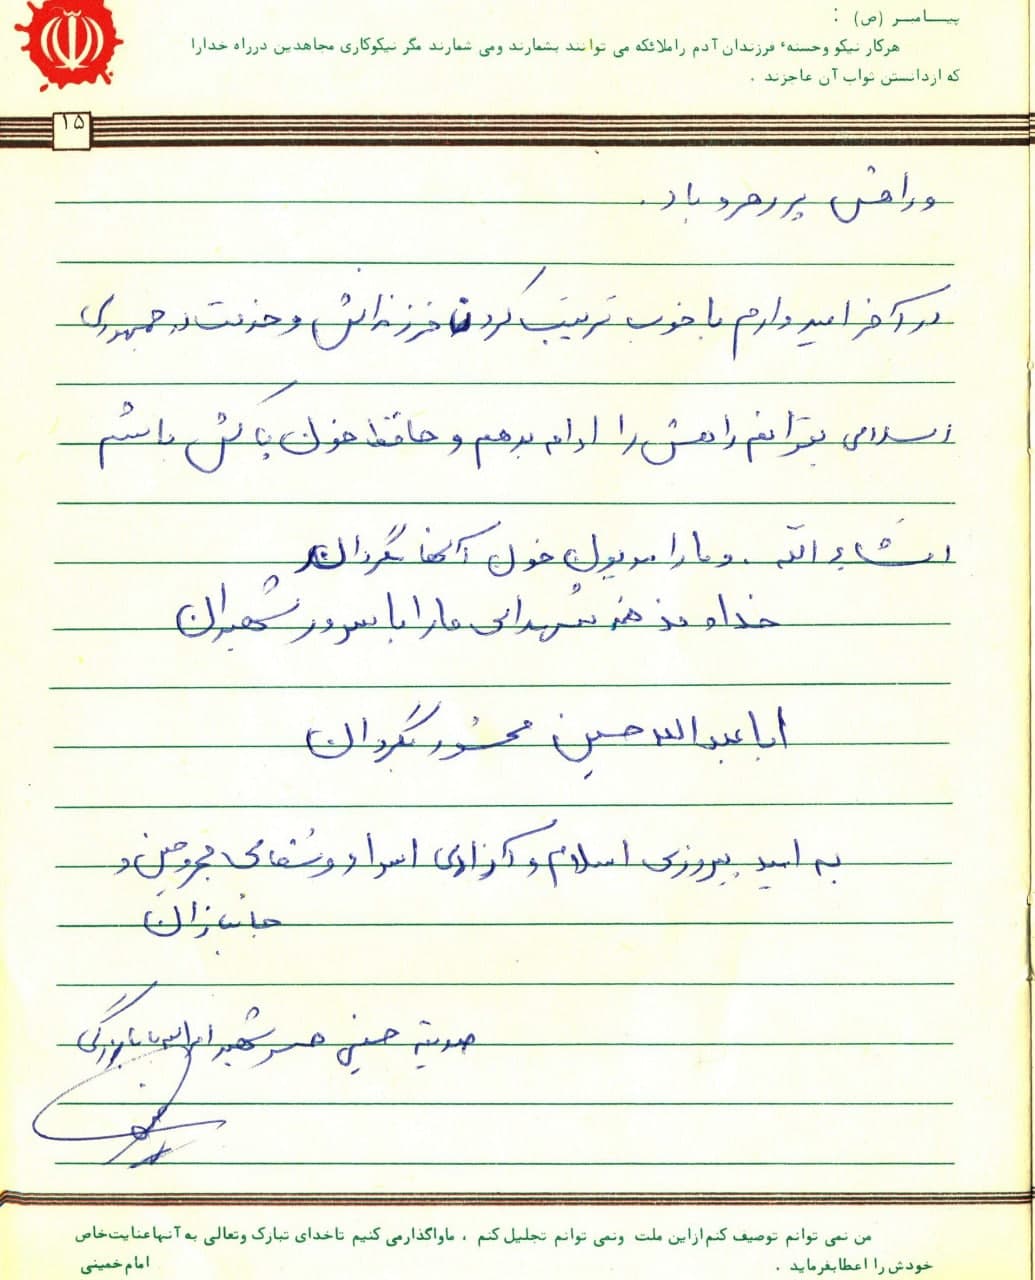 پیــامبــر (ص) :
هرکار نیکو وحسنهٔ فرزندان آدم راملائکه می توانند بشمارند ومی شمارند مگر نیکوکاری مجاهدین درراه خدارا
که ازدانستن ثواب آن عاجزند .
۱۵
و راهش پر رهرو باد .
در آخر امیدوارم با خوب تربیت کردن فرزندانش و خدمت در جمهوری
اسلامی بتوانم راهش را ادامه بدهم و حافظ خون پاکش باشم
انشاء الله . و ما را مدیون خون آنها نگردان
خداوند همه شهدای ما را با سرور شهیدان
ابا عبدالله حسین محشور بگردان
به امید پیروزی اسلام و آزادی اسرا و شفای مجروحین و
جانبازان
صدیقه حسینی همسر شهید بابابزرگی
من نمی توانم توصیف کنم ازاین ملت ونمی توانم تجلیل کنم ، ماواگذارمی کنیم تاخدای تبارک وتعالی به آنهاعنایت خاص
خودش را اعطابفرماید .
امام خمینی